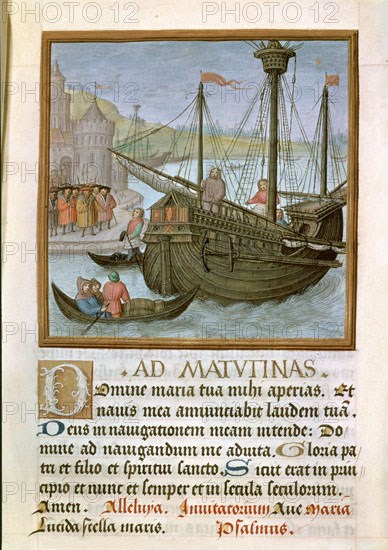 · AD MATVTINAS
Domine maria tua mihi aperias. Et
nauis mea annunciabit laudem tuā.
Deus in nauigationem meam intende: Do
mine ad nauigandum me adiuta. Gloria pa
tri et filio et spiritui sancto. Sicut erat in prin
cipio et nunc et semper et in secula seculorum.
Amen. Alleluya. Inuitatorium Aue Maria
Lucida stella maris. Psalmus.